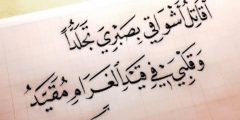 أقاتل أشواقي بصبري تجلداً
وقلبي في قيد الغرام مقيد